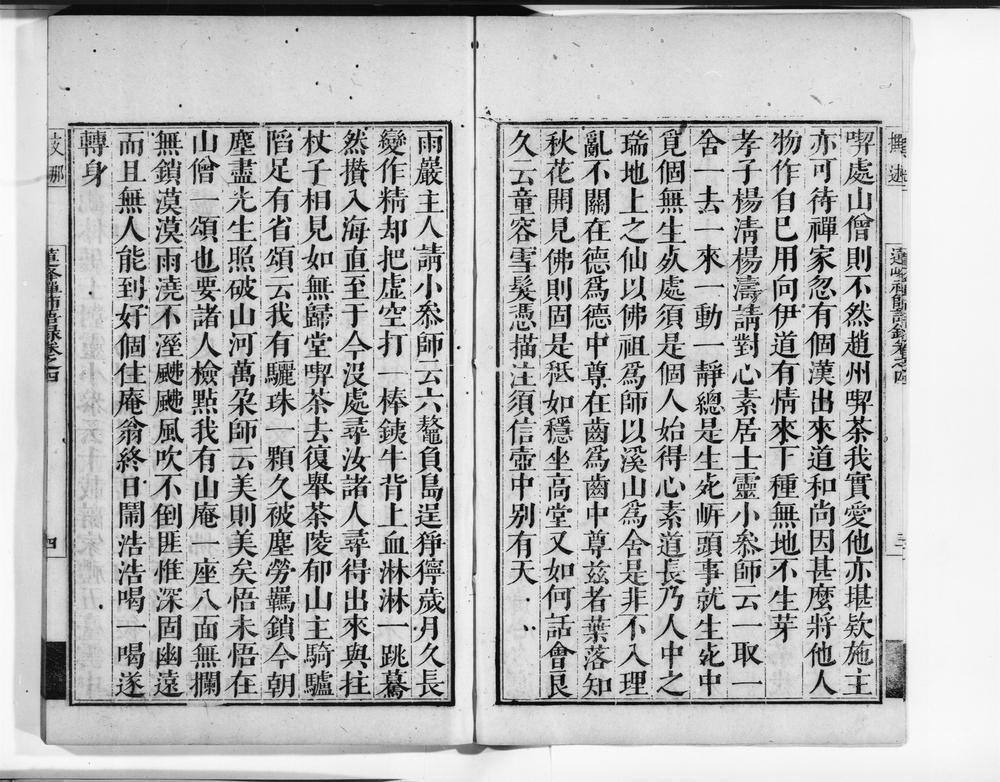 喫處山僧則不然趙州喫茶我實愛他亦堪欵施主
亦可待禪家忽有個漢出來道和尚因甚麼將他人
物作自巳用向伊道有情來下種無地不生芽
孝子楊清楊濤請對心素居士靈小叅師云一取一
舍一去一來一動一靜總是生死岍頭事就生死中
覓個無生死處須是個人始得心素道長乃人中之
瑞地上之仙以佛祖爲師以溪山爲舍是非不入理
亂不關在德爲德中尊在齒爲齒中尊兹者葉落知
秋花開見佛則固是秪如穩坐高堂又如何話會良
久云童容雪髮憑描注須信壺中别有天
雨巖主人請小叅師云六鼇負島逞猙獰歲月久長
變作精却把虛空打一棒鉄牛背上血淋淋一跳驀
然攢入海直至于今沒處尋汝諸人尋得出來與拄
杖子相見如無歸堂喫茶去復舉茶陵郁山主騎驢
蹈足有省頌云我有驪珠一顆久被塵勞羈鎖今朝
塵盡光生照破山河萬朶師云美則美矣悟未悟在
山僧一頌也要諸人檢點我有山庵一座八面無攔
無鎖漠漠雨澆不溼颾颾風吹不倒匪惟深固幽遠
而且無人能到好個住庵翁終日鬧浩浩喝一喝遂
轉身
禪師語錄卷之四
四